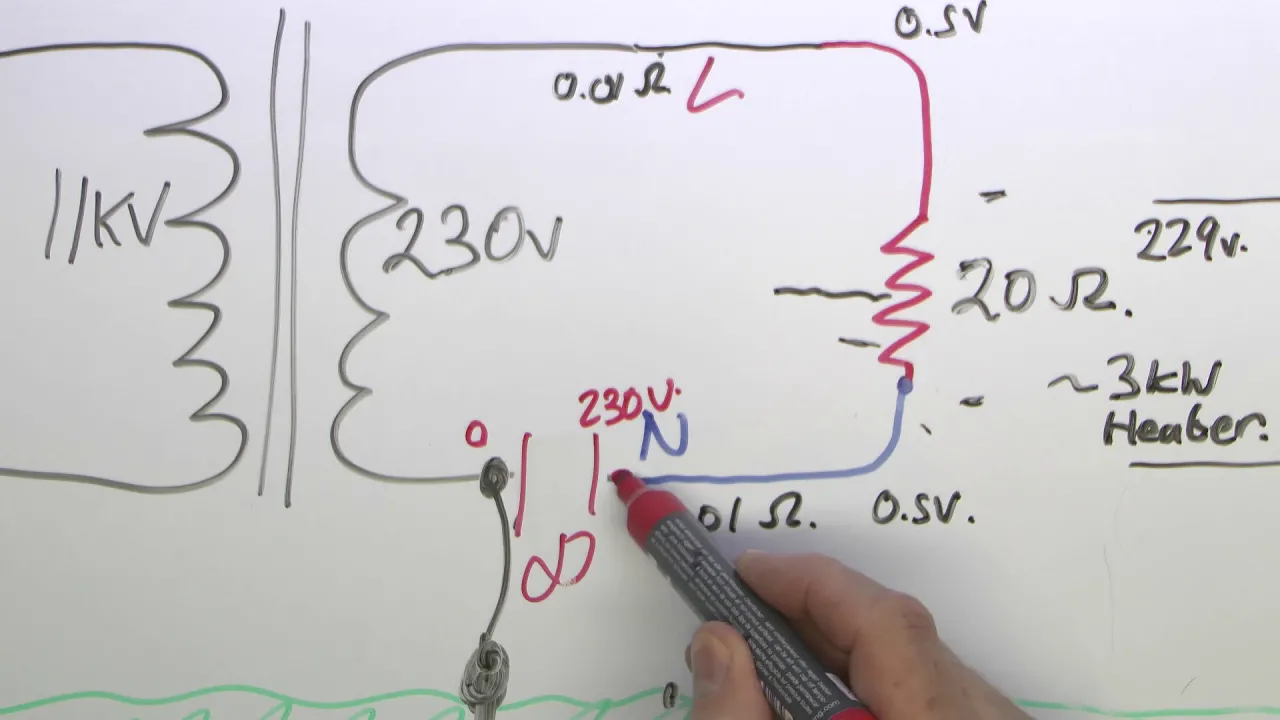 0.5V
0.01 Ω
L
11KV
230v
20 Ω.
229v.
~3kW
Heater.
0
230V.
N
01 Ω.
0.5V.
∞